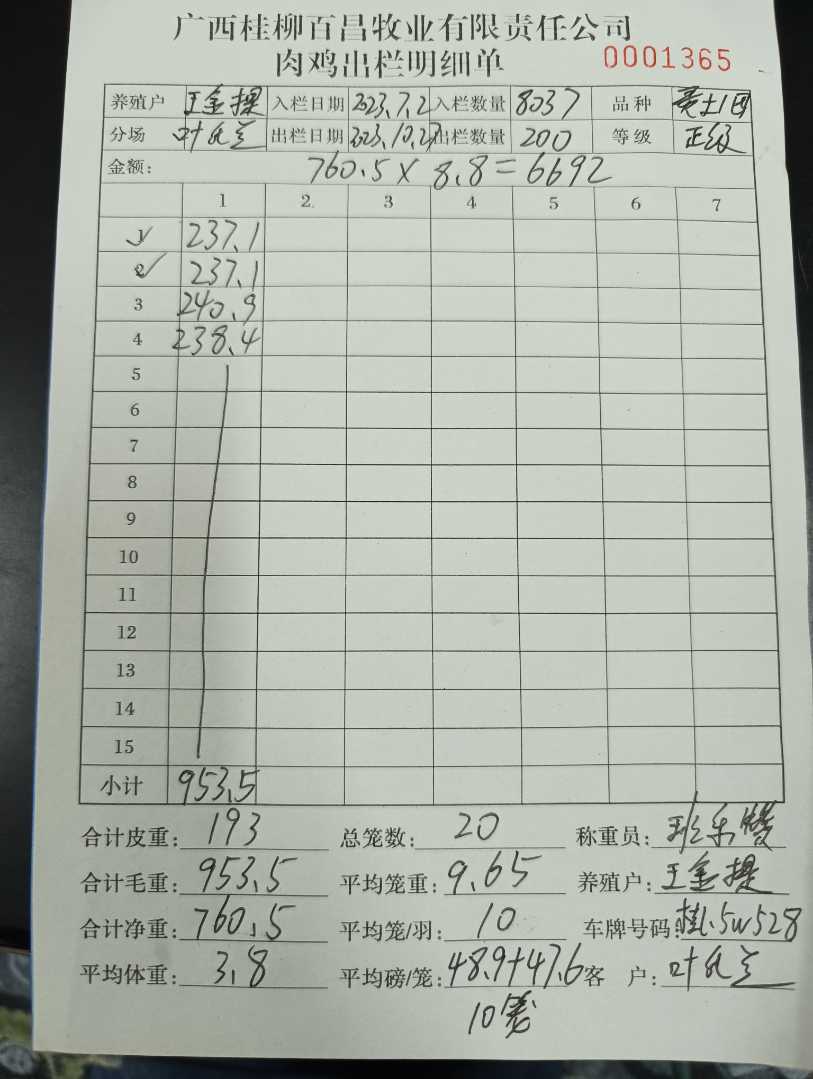 广西桂柳百昌牧业有限责任公司
肉鸡出栏明细单 0001365
养殖户 王金提 入栏日期 2023.7.2 入栏数量 8037 品种
分场 叶 出栏日期 2023.10.27 出栏数量 200 等级 正级
金额: 760.5 × 8.8 = 6692
1 2 3 4 5 6 7
1 237.1
2 237.1
3 240.9
4 238.4
5
6
7
8
9
10
11
12
13
14
15
小计 953.5
合计皮重: 193 总笼数: 20 称重员: 班
合计毛重: 953.5 平均笼重: 9.65 养殖户: 王金提
合计净重: 760.5 平均笼/羽: 10 车牌号码: 桂L.5W528
平均体重: 3.8 平均磅/笼: 48.9+47.6 客 户: 叶
10笼